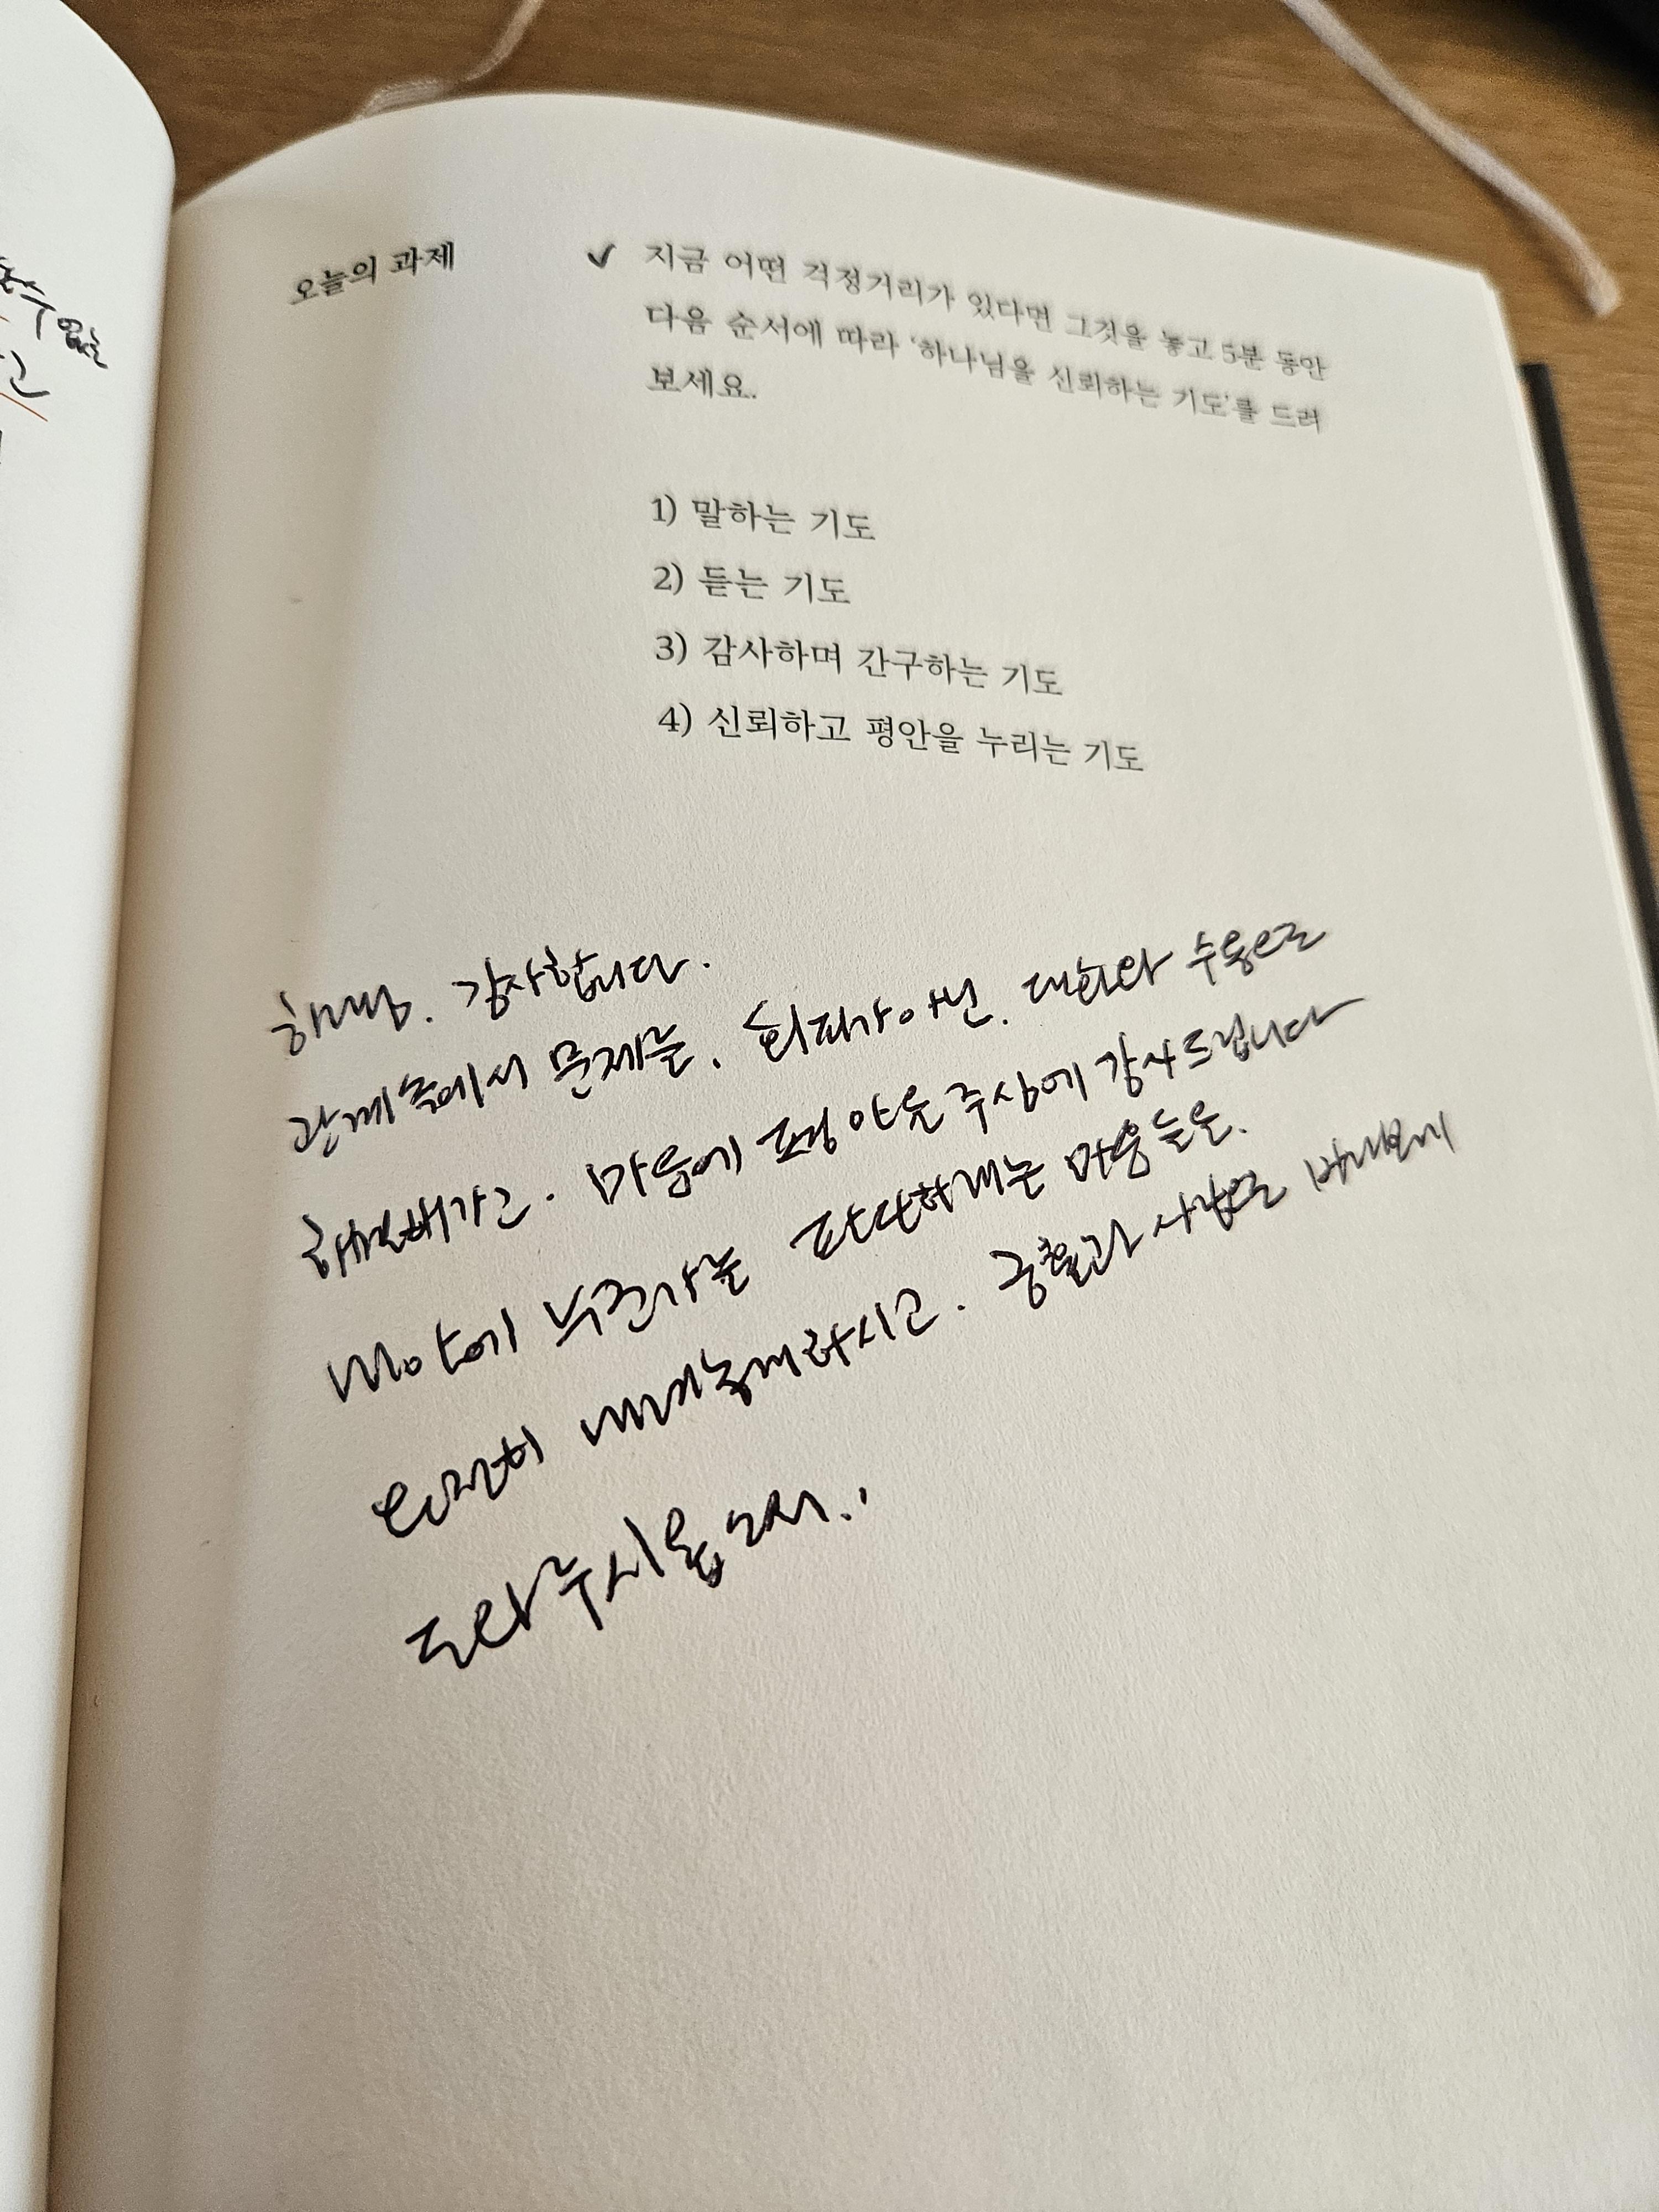 오늘의 과제
✓ 지금 어떤 걱정거리가 있다면 그것을 놓고 5분 동안
다음 순서에 따라 '하나님을 신뢰하는 기도'를 드려
보세요.
1) 말하는 기도
2) 듣는 기도
3) 감사하며 간구하는 기도
4) 신뢰하고 평안을 누리는 기도
하나님. 감사합니다.
관계속에서 문제를. 회피가 아닌. 대화와 수용으로
해결해가고. 마음에 평안을 주심에 감사드립니다
내 안에 누군가를 판단하려는 마음들을.
온전히 내려놓게하시고. 긍휼과 사랑으로
도와주시옵소서..